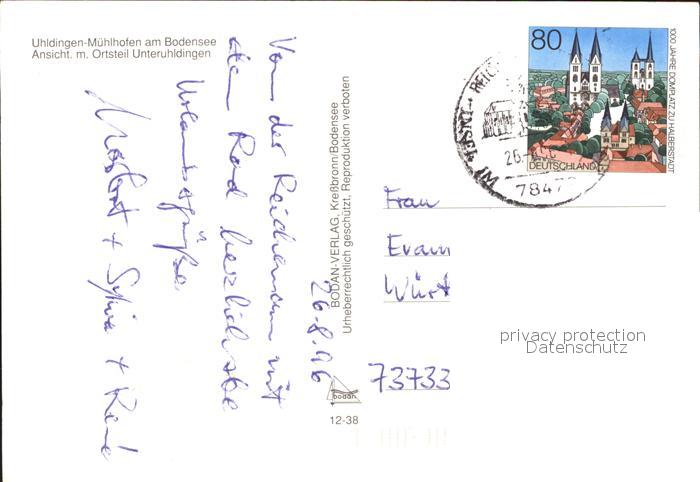 Uhldingen-Mühlhofen am Bodensee
Ansicht. m. Ortsteil Unteruhldingen
26.8.96
Von der Reichenau mit
dem Rad herzlichste
Urlaubsgrüße
+ Sylvia + René
BODAN-VERLAG, Kreßbronn/Bodensee
Urheberrechtlich geschützt, Reproduktion verboten
bodan
12-38
80
DEUTSCHLAND
1000 JAHRE DOMPLATZ ZU HALBERSTADT
INSEL REIC
26.
7847
IM
Frau
Evam
Würt
73733
privacy protection
Datenschutz